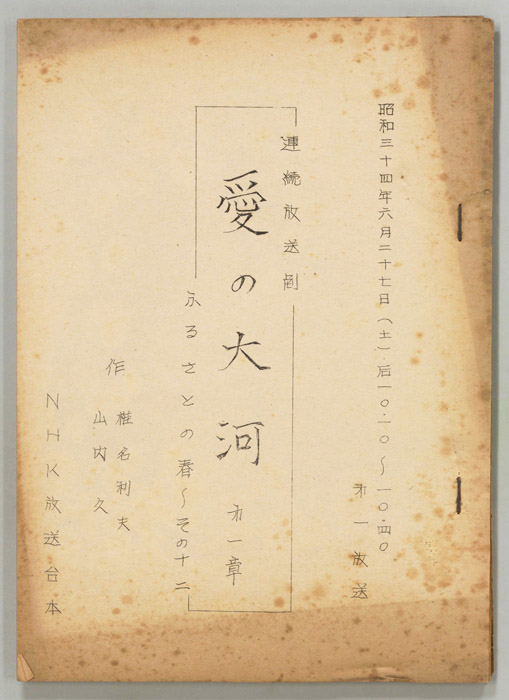 昭和三十四年六月二十七日(土)后一〇.一〇~一〇.四〇
才一放送
連続放送劇
愛の大河 才一章
ふるさとの春~その十二
作 椎名利夫
山内久
NHK放送台本